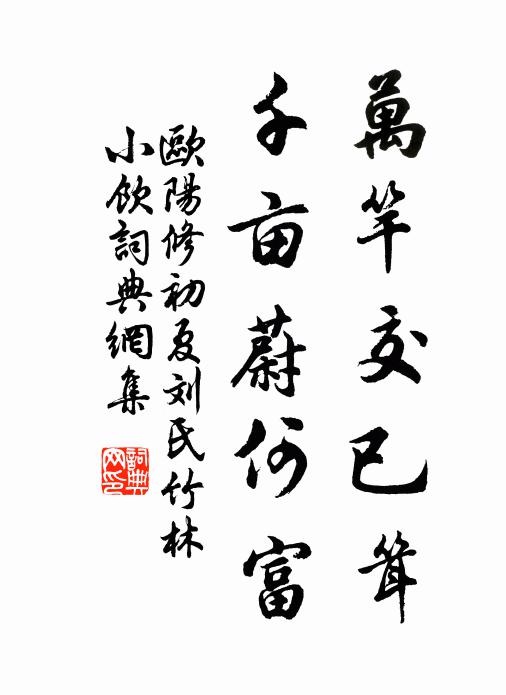 萬竿交已聳
千亩蔚何富
歐陽修初夏刘氏竹林
小飲詞典網集
詞典网印